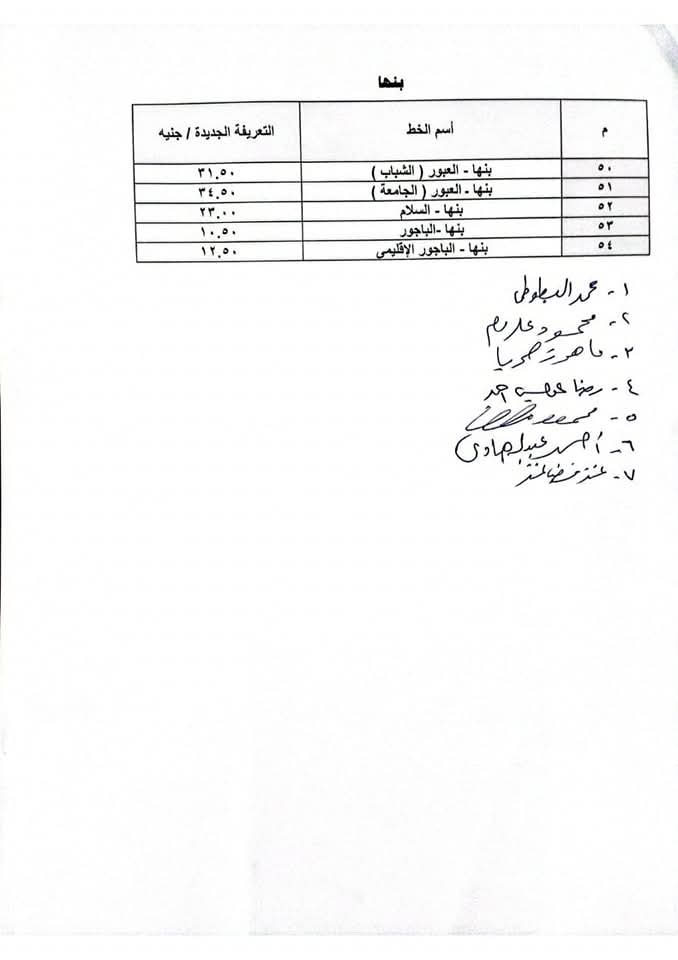 بنها
م أسم الخط التعريفة الجديدة / جنيه
٥٠ بنها - العبور ( الشباب ) ٣١.٥٠
٥١ بنها - العبور ( الجامعة ) ٣٤.٥٠
٥٢ بنها - السلام ٢٣.٠٠
٥٣ بنها -الباجور ١٠.٥٠
٥٤ بنها - الباجور الإقليمي ١٢.٥٠
١- محمد
٢- محمود
٣-
٤- رضا احمد
٥- محمود
٦- أحمد عبدالهادى
٧-